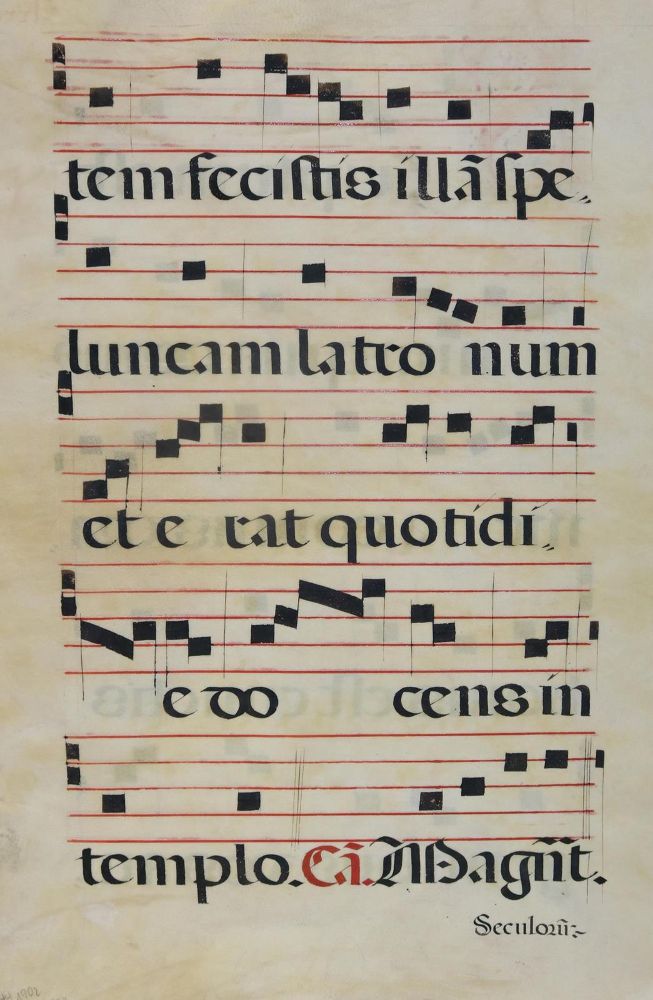 tem feciſtis illā ſpe-
luncam latro num
et e rat quotidi-
e do cens in
templo. Cā. Magn̄t.
Seculorū:~
1902